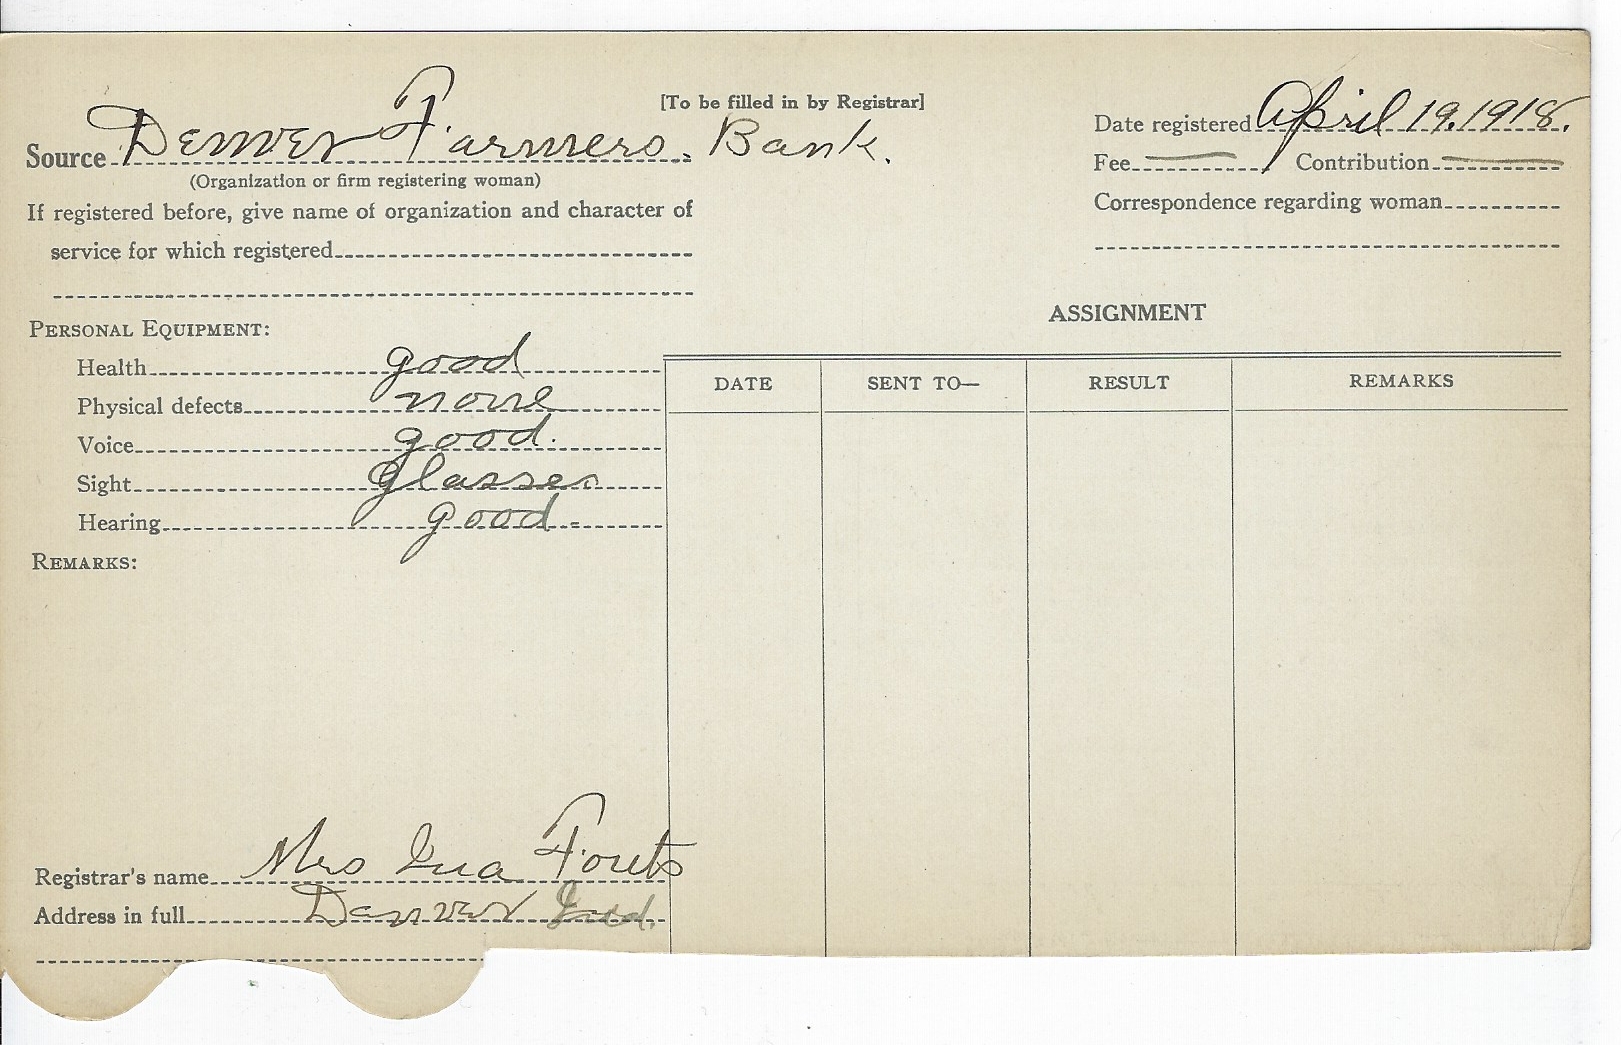 [To be filled in by Registrar]
Source Denver Farmers Bank.
(Organization or firm registering woman)
If registered before, give name of organization and character of
service for which registered
Date registered April 19, 1918.
Fee Contribution
Correspondence regarding woman
PERSONAL EQUIPMENT:
Health good
Physical defects none
Voice good.
Sight Glasses
Hearing good
REMARKS:
ASSIGNMENT
DATE SENT TO— RESULT REMARKS
Registrar's name Mrs Ina Fouts
Address in full Denver Ind.